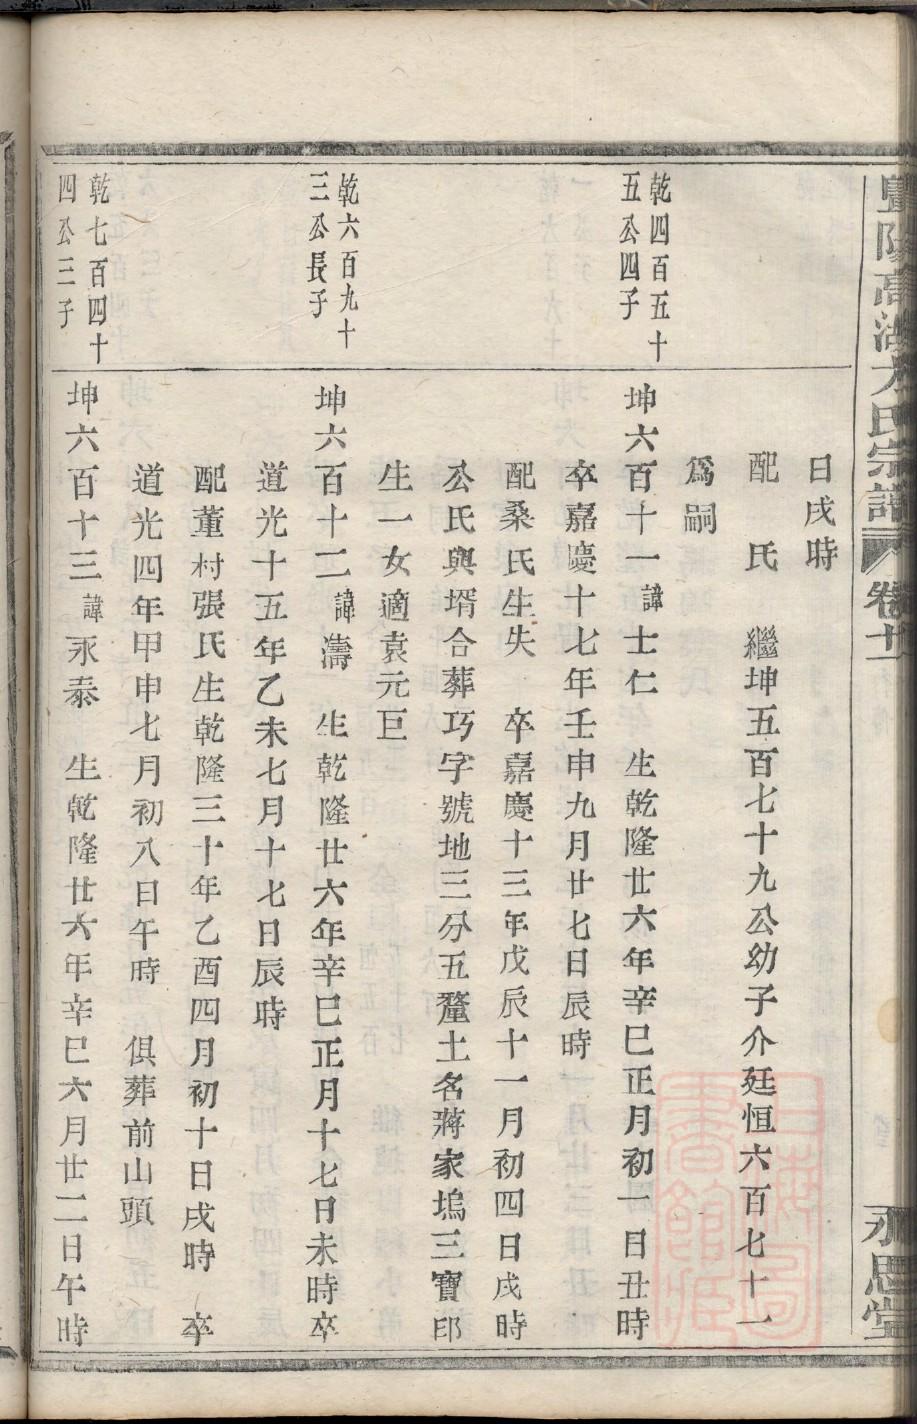 暨陽高湖方氏宗譜 卷十 永思堂
日戌時
配 氏 繼坤五百七十九公幼子介廷恒六百七十一
爲嗣
乾四百五十
五公四子
坤六百十一諱士仁 生乾隆廿六年辛巳正月初一日丑時
卒嘉慶十七年壬申九月廿七日辰時
配桑氏生失 卒嘉慶十三年戊辰十一月初四日戌時
公氏與壻合葬巧字號地三分五釐土名蔣家塢三寶印
生一女適袁元巨
乾六百九十
三公長子
坤六百十二諱濤 生乾隆廿六年辛巳正月十七日未時卒
道光十五年乙未七月十七日辰時
配董村張氏生乾隆三十年乙酉四月初十日戌時 卒
道光四年甲申七月初八日午時 俱葬前山頭
乾七百四十
四公三子
坤六百十三諱永泰 生乾隆廿六年辛巳六月廿二日午時